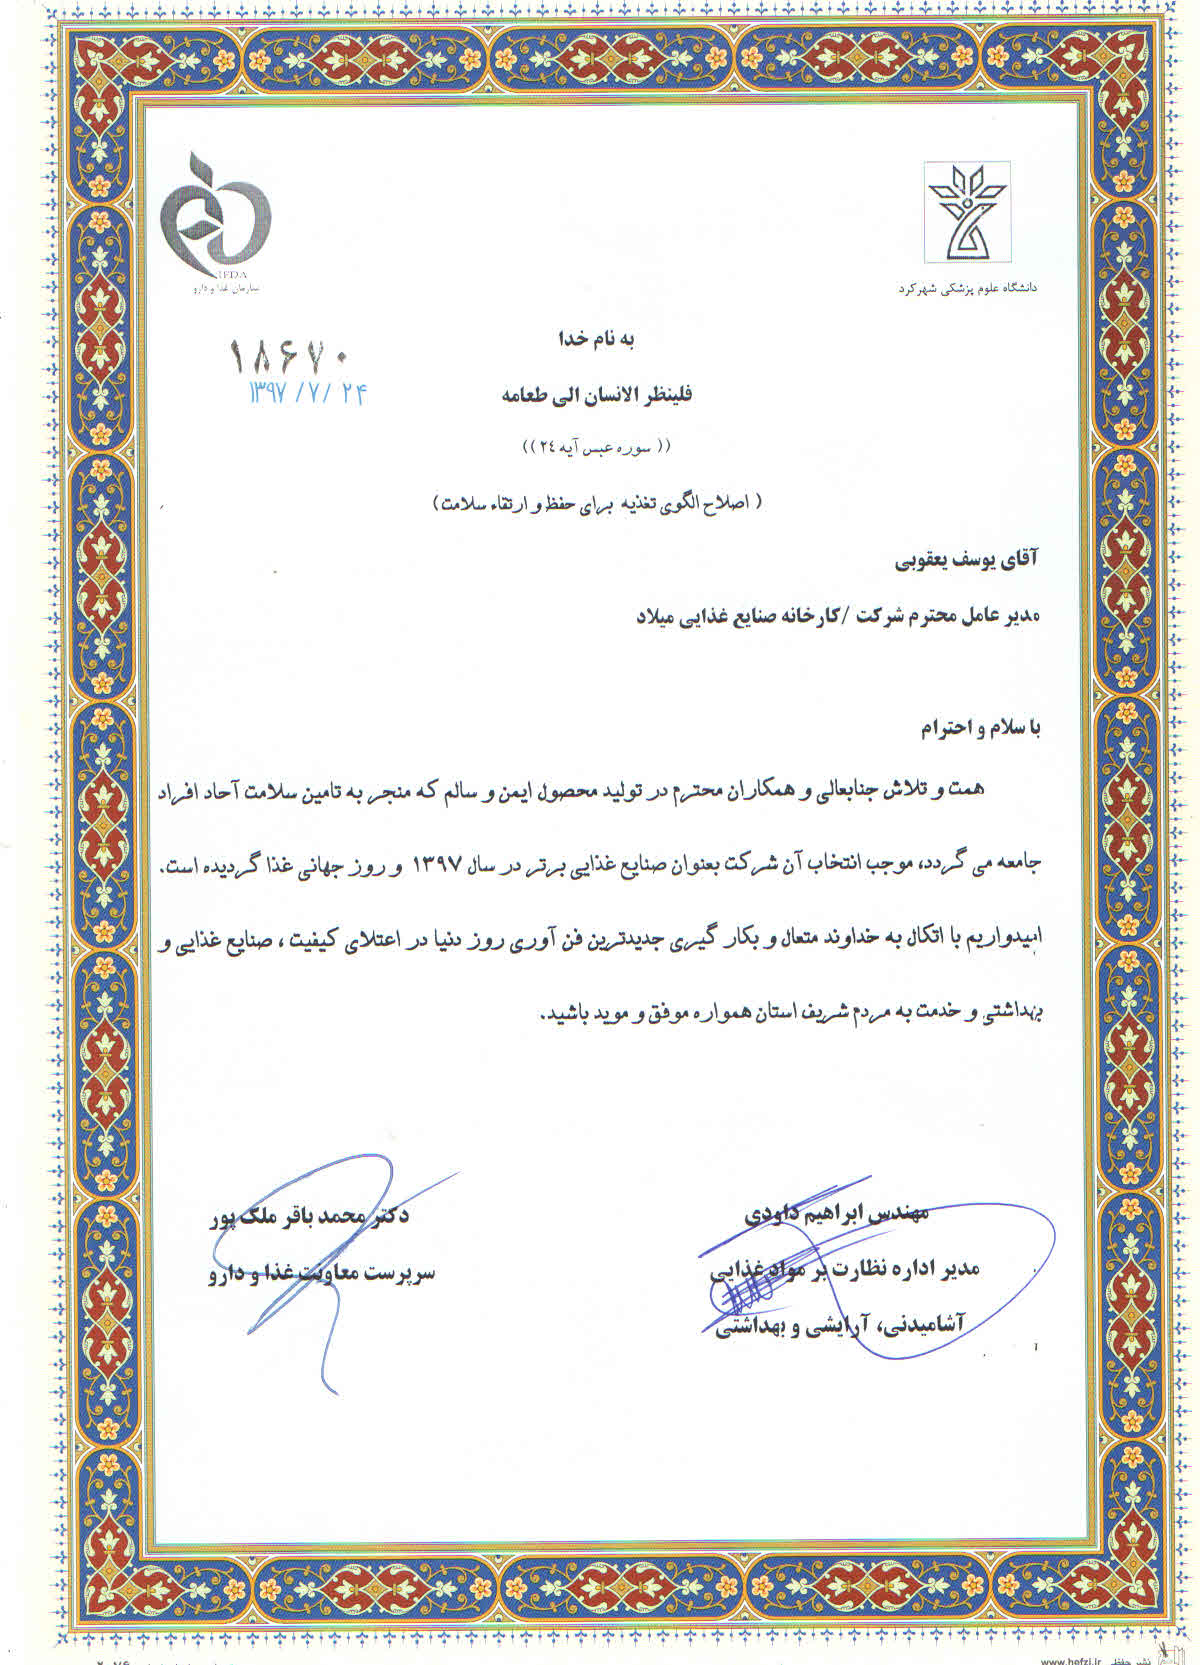 دانشگاه علوم پزشکی شهرکرد
IFDA
سازمان غذا و دارو
۱۸۶۷۰
۱۳۹۷/۷/۲۴
به نام خدا
فلینظر الانسان الی طعامه
(( سوره عبس آیه ٢٤ ))
( اصلاح الگوی تغذیه برای حفظ و ارتقاء سلامت)
آقای یوسف یعقوبی
مدیر عامل محترم شرکت /کارخانه صنایع غذایی میلاد
با سلام و احترام
همت و تلاش جنابعالی و همکاران محترم در تولید محصول ایمن و سالم که منجر به تامین سلامت آحاد افراد
جامعه می گردد، موجب انتخاب آن شرکت بعنوان صنایع غذایی برتر در سال ۱۳۹۷ و روز جهانی غذا گردیده است.
امیدواریم با اتکال به خداوند متعال و بکار گیری جدیدترین فن آوری روز دنیا در اعتلای کیفیت ، صنایع غذایی و
بهداشتی و خدمت به مردم شریف استان همواره موفق و موید باشید.
مهندس ابراهیم داودی
مدیر اداره نظارت بر مواد غذایی
آشامیدنی، آرایشی و بهداشتی
دکتر محمد باقر ملک پور
سرپرست معاونت غذا و دارو
نشر حفظی www.hefzi.ir